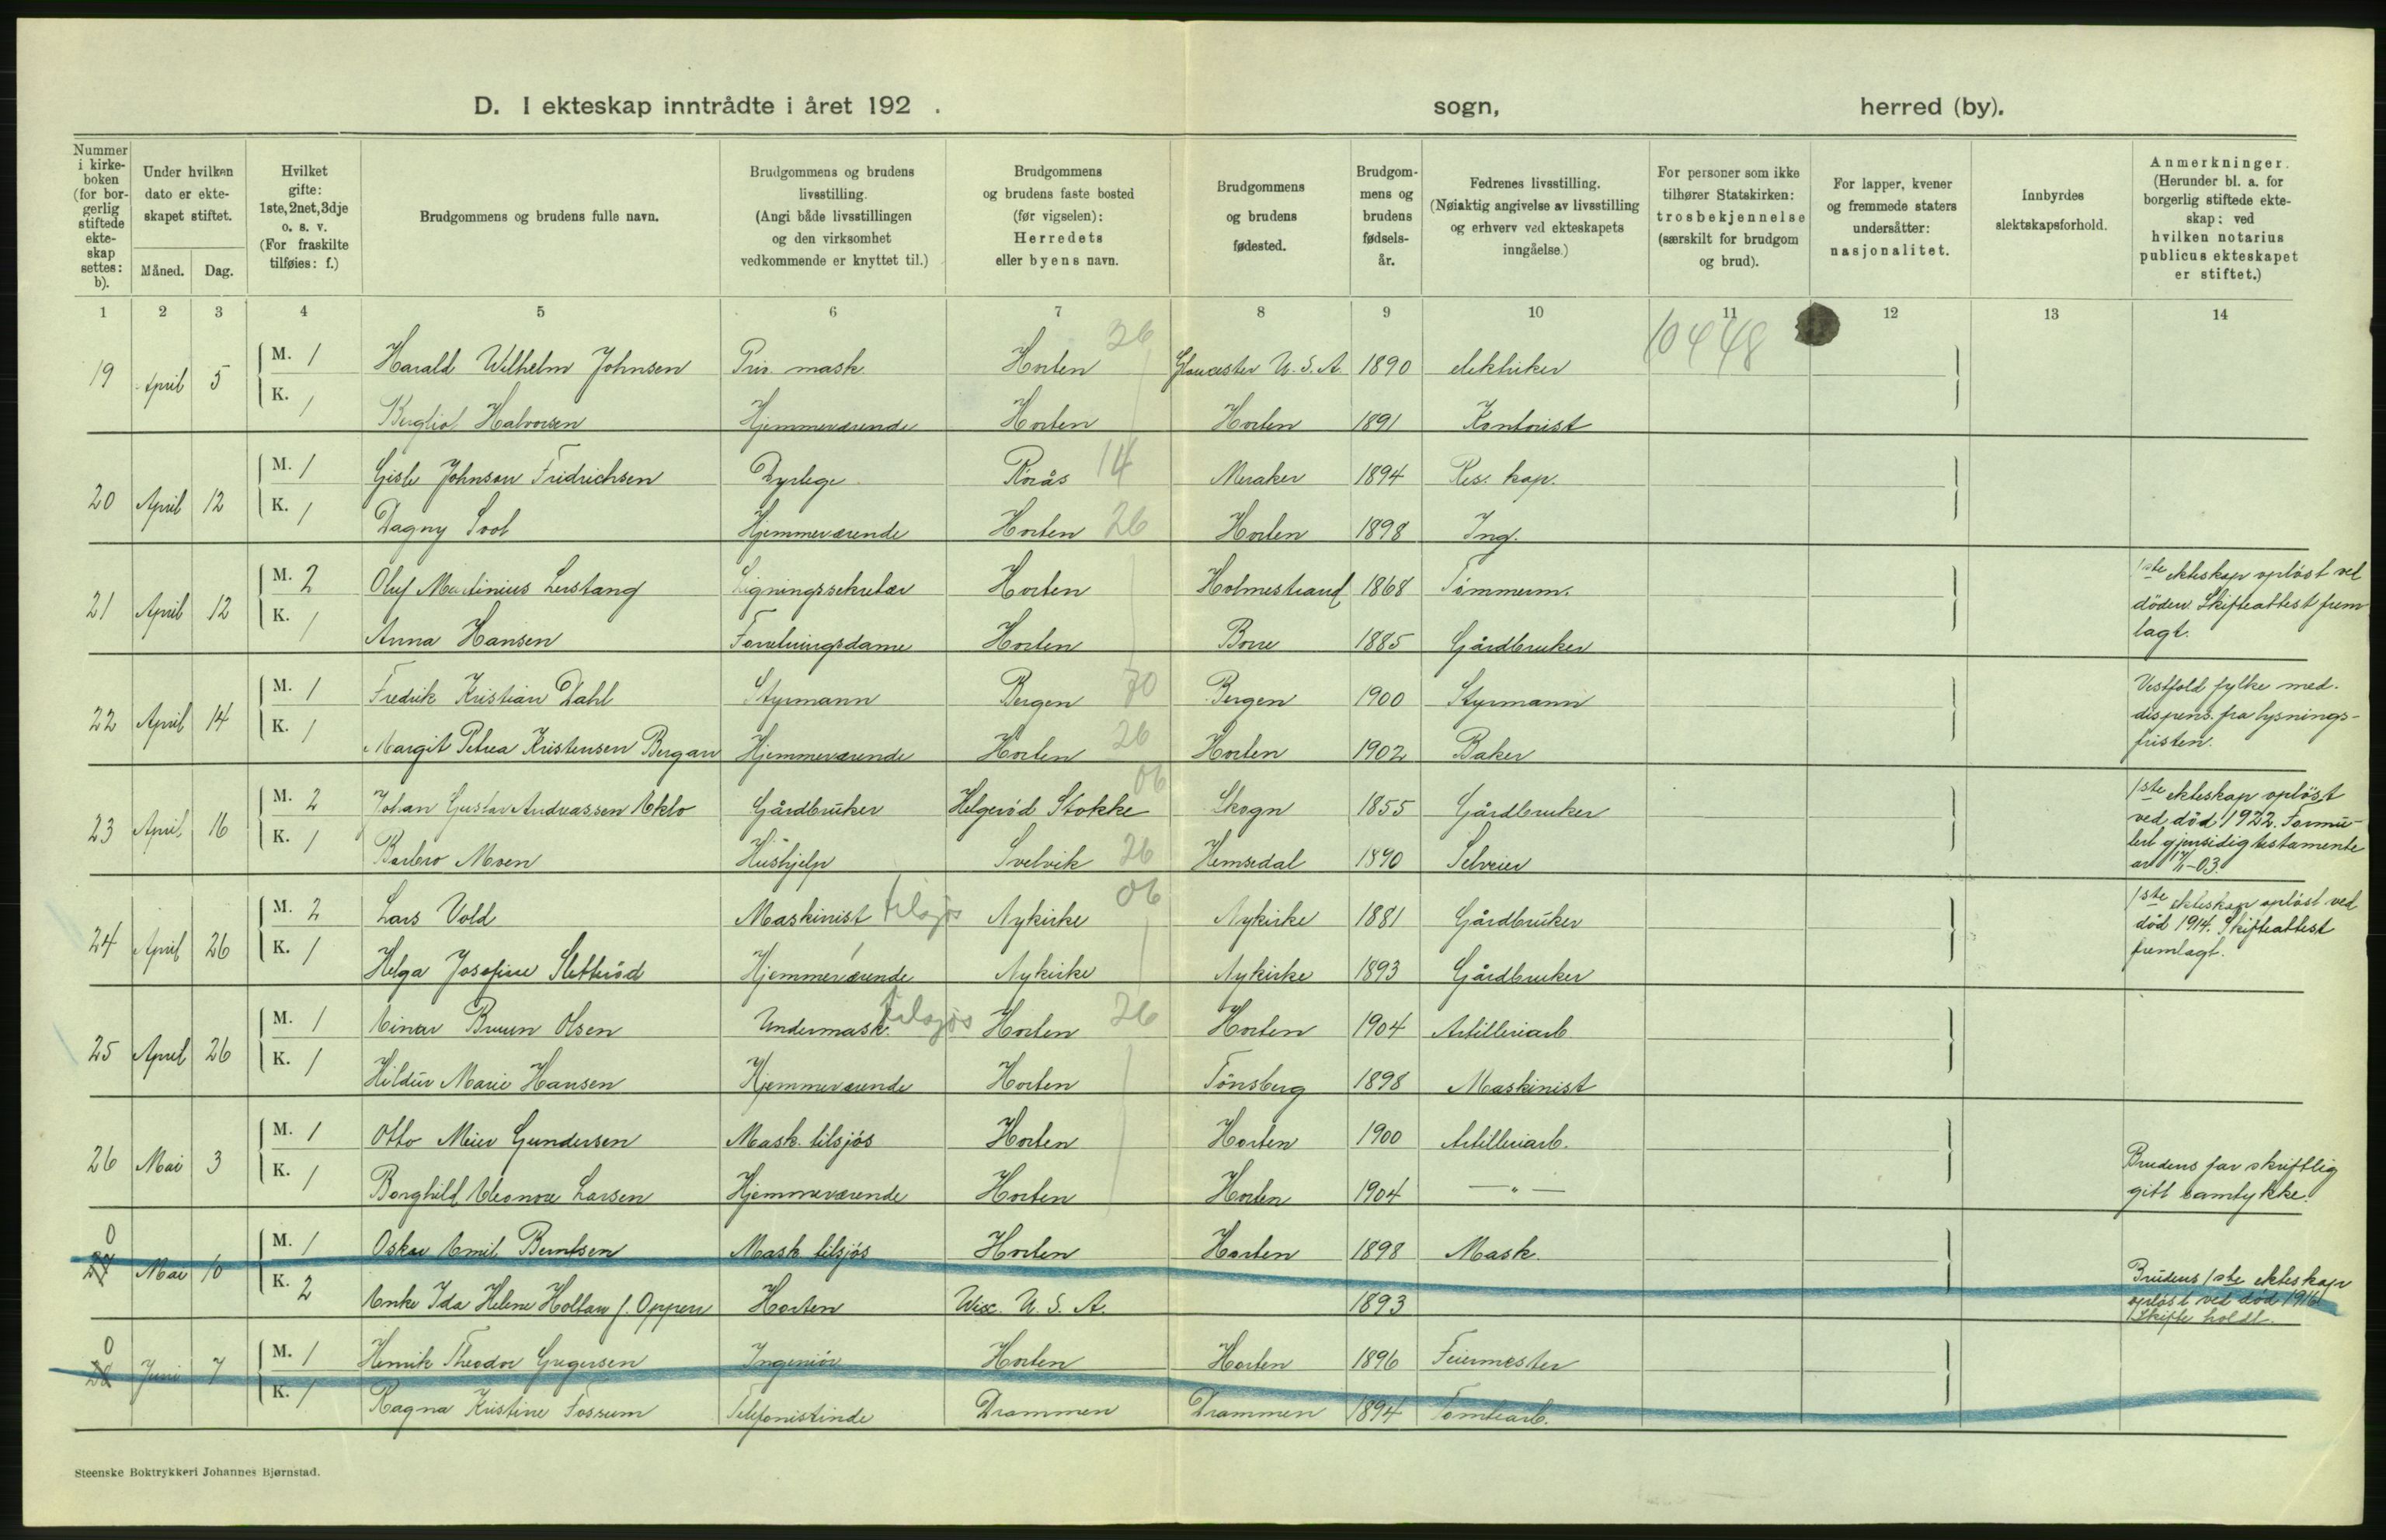 D. I ekteskap inntrådte i året 192 . sogn, herred (by).
Nummer i kirkeboken (for borgerlig stiftede ekteskap settes: b).
Under hvilken dato er ekteskapet stiftet.
Måned. Dag.
Hvilket gifte: 1ste, 2net, 3dje o. s. v. (For fraskilte tilføies: f.)
Brudgommens og brudens fulle navn.
Brudgommens og brudens livsstilling. (Angi både livsstillingen og den virksomhet vedkommende er knyttet til.)
Brudgommens og brudens faste bosted (før vigselen): Herredets eller byens navn.
Brudgommens og brudens fødested.
Brudgommens og brudens fødselsår.
Fedrenes livsstilling. (Nøiaktig angivelse av livsstilling og erhverv ved ekteskapets inngåelse.)
For personer som ikke tilhører Statskirken: trosbekjennelse (særskilt for brudgom og brud).
For lapper, kvener og fremmede staters undersåtter: nasjonalitet.
Innbyrdes slektskapsforhold.
Anmerkninger. (Herunder bl. a. for borgerlig stiftede ekteskap: ved hvilken notarius publicus ekteskapet er stiftet.)
1 2 3 4 5 6 7 8 9 10 11 12 13 14
26 10448
19 April 5 M. 1 Harald Wilhelm Johnsen Priv. mask. Horten Gloucester U.S.A. 1890 elektriker
K. 1 Bergliot Halvorsen Hjemmeværende Horten Horten 1891 Kontorist
20 April 12 M. 1 Gisle Johnson Fridrichsen Dyrlege Rörås 14 Meraker 1894 Res. kap.
K. 1 Dagny Soot Hjemmeværende Horten 26 Horten 1898 Ing.
21 April 12 M. 2 Oluf Martinius Lerstang Ligningssekretær Horten Holmestrand 1868 Tömmerm. 1ste ekteskap oplöst ved
döden. Skifteattest frem
lagt.
K. 1 Anna Hansen Forretningsdame Horten Borre 1885 Gårdbruker
22 April 14 M. 1 Fredrik Kristian Dahl Styrmann Bergen 70 Bergen 1900 Styrmann Vestfold fylke med.
dispens. fra lysnings-
fristen.
K. 1 Margit Petrea Kristensen Bergan Hjemmeværende Horten 26 Horten 1902 Baker
23 April 16 M. 2 Johan Gustav Andreassen Eklo Gårdbruker Helgeröd Stokke 06 Skogn 1855 Gårdbruker 1ste ekteskap oplöst
ved död 1922.
gjensidig testamente
K. 1 Barbro Moen Hushjelp Svelvik 26 Hemsedal 1890 Selveier
24 April 26 M. 2 Lars Vold Maskinist tilsjös Nykirke 06 Nykirke 1881 Gårdbruker 1ste ekteskap oplöst ved
död 1914. Skifteattest
fremlagt.
K. 1 Helga Josefine Sletteröd Hjemmeværende Nykirke Nykirke 1893 Gårdbruker
25 April 26 M. 1 Einar Bruun Olsen Undermask. tilsjös Horten 26 Horten 1904 Artilleriarb.
K. 1 Hildur Marie Hansen Hjemmeværende Horten Tönsberg 1898 Maskinist
26 Mai 3 M. 1 Otto Meier Gundersen Mask. tilsjös Horten Horten 1900 Artilleriarb.
K. 1 Borghild Eleonore Larsen Hjemmeværende Horten Horten 1904 — " — Brudens far skriftlig
gitt samtykke.
0
27 Mai 10 M. 1 Oskar Emil Berntsen Mask. tilsjös Horten Horten 1898 Mask.
K. 2 Enke Ida Helene Holtan f. Oppen Horten Wisc. U. S. A. 1893 Brudens 1ste ekteskap
oplöst ved död 1914
Skifte holdt.
0
28 Juni 7 M. 1 Henrik Theodor Gregersen Ingeniör Horten Horten 1896 Feiermester
K. 1 Ragna Kristine Fossum Telefonistinde Drammen Drammen 1894 Tomtearb.
Steenske Boktrykkeri Johannes Bjørnstad.